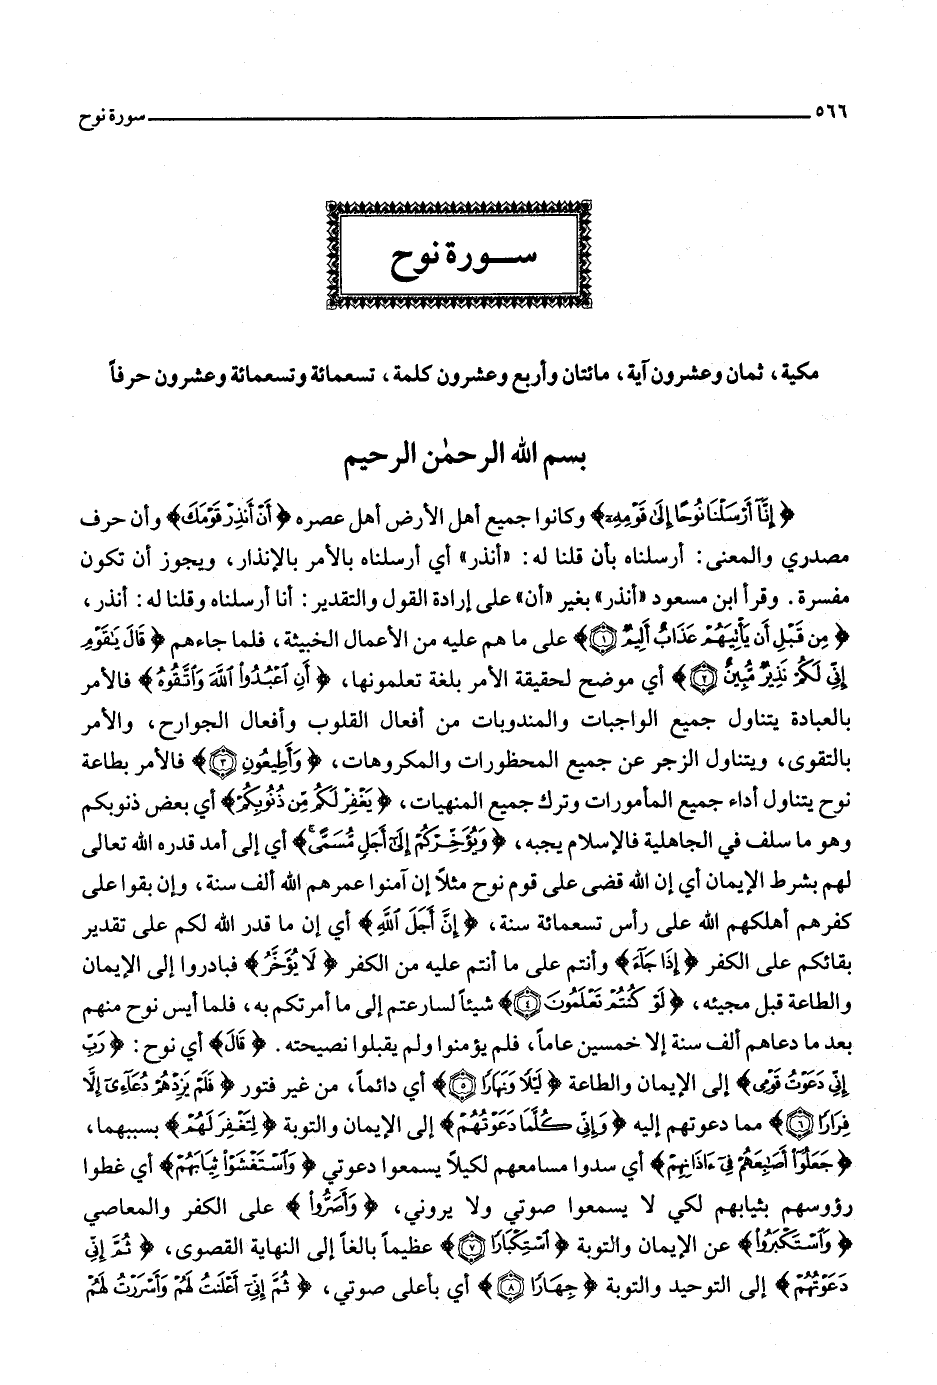 ٥٦٦ سورة نوح
سورة نوح
مكية، ثمان وعشرون آية، مائتان وأربع وعشرون كلمة، تسعمائة وتسعمائة وعشرون حرفاً
بسم الله الرحمٰن الرحيم
﴿إِنَّآ أَرْسَلْنَا نُوحًا إِلَىٰ قَوْمِهِۦٓ﴾ وكانوا جميع أهل الأرض أهل عصره ﴿أَنْ أَنذِرْ قَوْمَكَ﴾ وأن حرف
مصدري والمعنى: أرسلناه بأن قلنا له: «أنذر» أي أرسلناه بالأمر بالإنذار، ويجوز أن تكون
مفسرة. وقرأ ابن مسعود «أنذر» بغير «أن» على إرادة القول والتقدير: أنا أرسلناه وقلنا له: أنذر،
﴿مِن قَبْلِ أَن يَأْتِيَهُمْ عَذَابٌ أَلِيمٌ ۝١﴾ على ما هم عليه من الأعمال الخبيثة، فلما جاءهم ﴿قَالَ يَٰقَوْمِ
إِنِّى لَكُمْ نَذِيرٌ مُّبِينٌ ۝٢﴾ أي موضح لحقيقة الأمر بلغة تعلمونها، ﴿أَنِ ٱعْبُدُوا۟ ٱللَّهَ وَٱتَّقُوهُ﴾ فالأمر
بالعبادة يتناول جميع الواجبات والمندوبات من أفعال القلوب وأفعال الجوارح، والأمر
بالتقوى، ويتناول الزجر عن جميع المحظورات والمكروهات، ﴿وَأَطِيعُونِ ۝٣﴾ فالأمر بطاعة
نوح يتناول أداء جميع المأمورات وترك جميع المنهيات، ﴿يَغْفِرْ لَكُم مِّن ذُنُوبِكُمْ﴾ أي بعض ذنوبكم
وهو ما سلف في الجاهلية فالإسلام يجبه، ﴿وَيُؤَخِّرْكُمْ إِلَىٰٓ أَجَلٍ مُّسَمًّىۚ﴾ أي إلى أمد قدره الله تعالى
لهم بشرط الإيمان أي إن الله قضى على قوم نوح مثلاً إن آمنوا عمرهم الله ألف سنة، وإن بقوا على
كفرهم أهلكهم الله على رأس تسعمائة سنة، ﴿إِنَّ أَجَلَ ٱللَّهِ﴾ أي إن ما قدر الله لكم على تقدير
بقائكم على الكفر ﴿إِذَا جَآءَ﴾ وأنتم على ما أنتم عليه من الكفر ﴿لَا يُؤَخَّرُ﴾ فبادروا إلى الإيمان
والطاعة قبل مجيئه، ﴿لَوْ كُنتُمْ تَعْلَمُونَ ۝٤﴾ شيئاً لسارعتم إلى ما أمرتكم به، فلما أيس نوح منهم
بعد ما دعاهم ألف سنة إلا خمسين عاماً، فلم يؤمنوا ولم يقبلوا نصيحته. ﴿قَالَ﴾ أي نوح: ﴿رَبِّ
إِنِّى دَعَوْتُ قَوْمِى﴾ إلى الإيمان والطاعة ﴿لَيْلًا وَنَهَارًا ۝٥﴾ أي دائماً، من غير فتور ﴿فَلَمْ يَزِدْهُمْ دُعَآءِىٓ إِلَّا
فِرَارًا ۝٦﴾ مما دعوتهم إليه ﴿وَإِنِّى كُلَّمَا دَعَوْتُهُمْ﴾ إلى الإيمان والتوبة ﴿لِتَغْفِرَ لَهُمْ﴾ بسببهما،
﴿جَعَلُوٓا۟ أَصَٰبِعَهُمْ فِىٓ ءَاذَانِهِمْ﴾ أي سدوا مسامعهم لكيلاً يسمعوا دعوتي ﴿وَٱسْتَغْشَوْا۟ ثِيَابَهُمْ﴾ أي غطوا
رؤوسهم بثيابهم لكي لا يسمعوا صوتي ولا يروني، ﴿وَأَصَرُّوا۟﴾ على الكفر والمعاصي
﴿وَٱسْتَكْبَرُوا۟﴾ عن الإيمان والتوبة ﴿ٱسْتِكْبَارًا ۝٧﴾ عظيماً بالغاً إلى النهاية القصوى، ﴿ثُمَّ إِنِّى
دَعَوْتُهُمْ﴾ إلى التوحيد والتوبة ﴿جِهَارًا ۝٨﴾ أي بأعلى صوتي، ﴿ثُمَّ إِنِّىٓ أَعْلَنتُ لَهُمْ وَأَسْرَرْتُ لَهُمْ